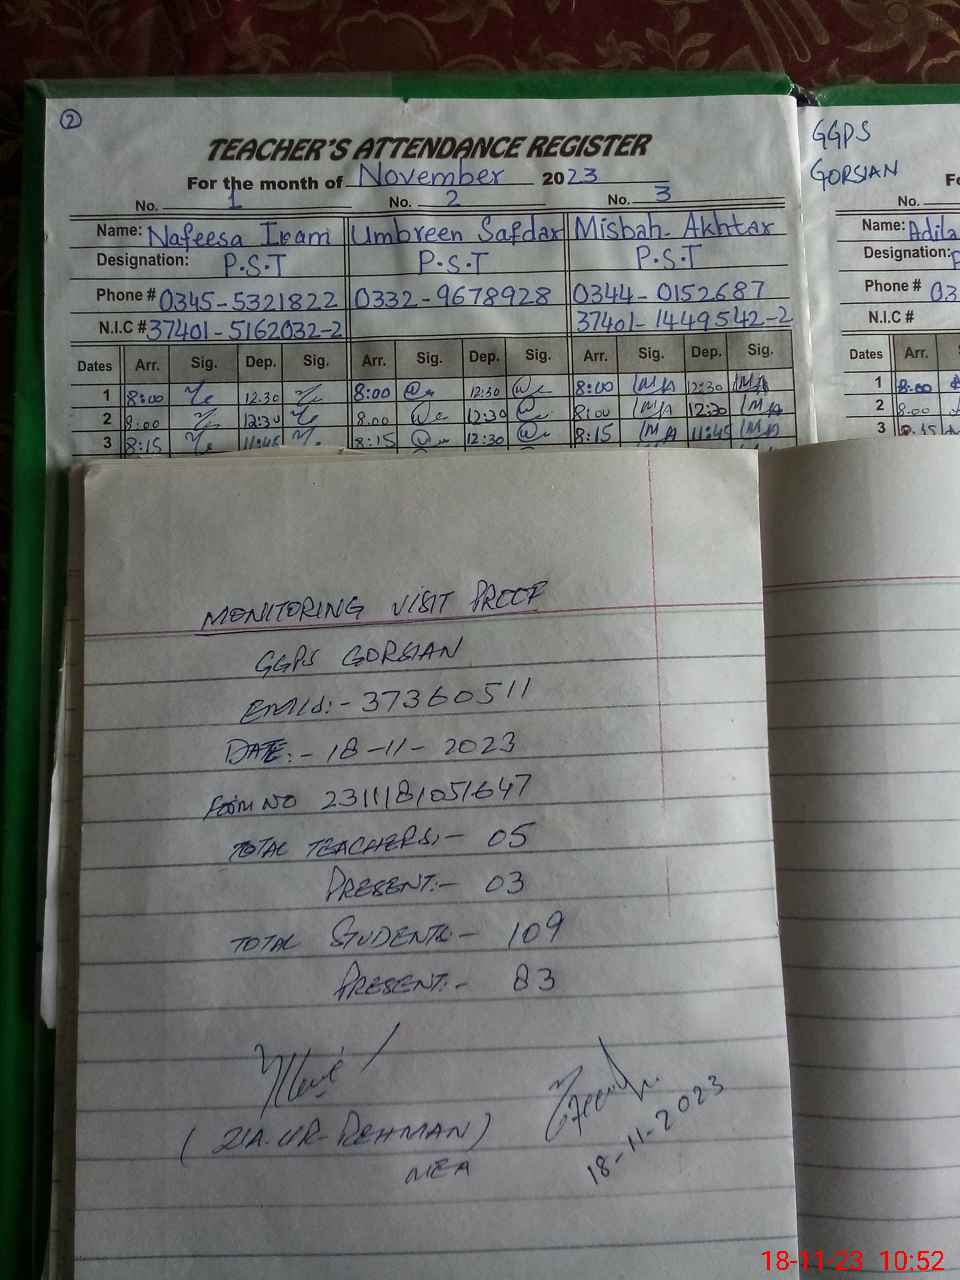 2
TEACHER'S ATTENDANCE REGISTER
For the month of November 2023
No. 1 No. 2 No. 3
Name: Nafeesa Iram Umbreen Safdar Misbah Akhtar
Designation: P.S.T P.S.T P.S.T
Phone # 0345-5321822 0332-9678928 0344-0152687
N.I.C # 37401-5162032-2 37401-1449542-2
Dates Arr. Sig. Dep. Sig. Arr. Sig. Dep. Sig. Arr. Sig. Dep. Sig.
1 8:00 12:30 8:00 12:30 8:00 MA 12:30 MA
2 8:00 12:30 8:00 12:30 8:00 MA 12:30 MA
3 8:15 11:45 8:15 12:30 8:15 MA 11:45 MA
GGPS
GORSIAN
No.
Name: Adila
Designation:
Phone # 03
N.I.C #
Dates Arr.
1 8:00
2 8:00
3 8:15
MONITORING VISIT PROOF
GGPS GORSIAN
EMIS:- 37360511
DATE:- 18-11-2023
FORM NO 2311181051647
TOTAL TEACHERS:- 05
PRESENT:- 03
TOTAL STUDENTS:- 109
PRESENT:- 83
(ZIA-UR-REHMAN)
MEA
18-11-2023
18-11-23 10:52